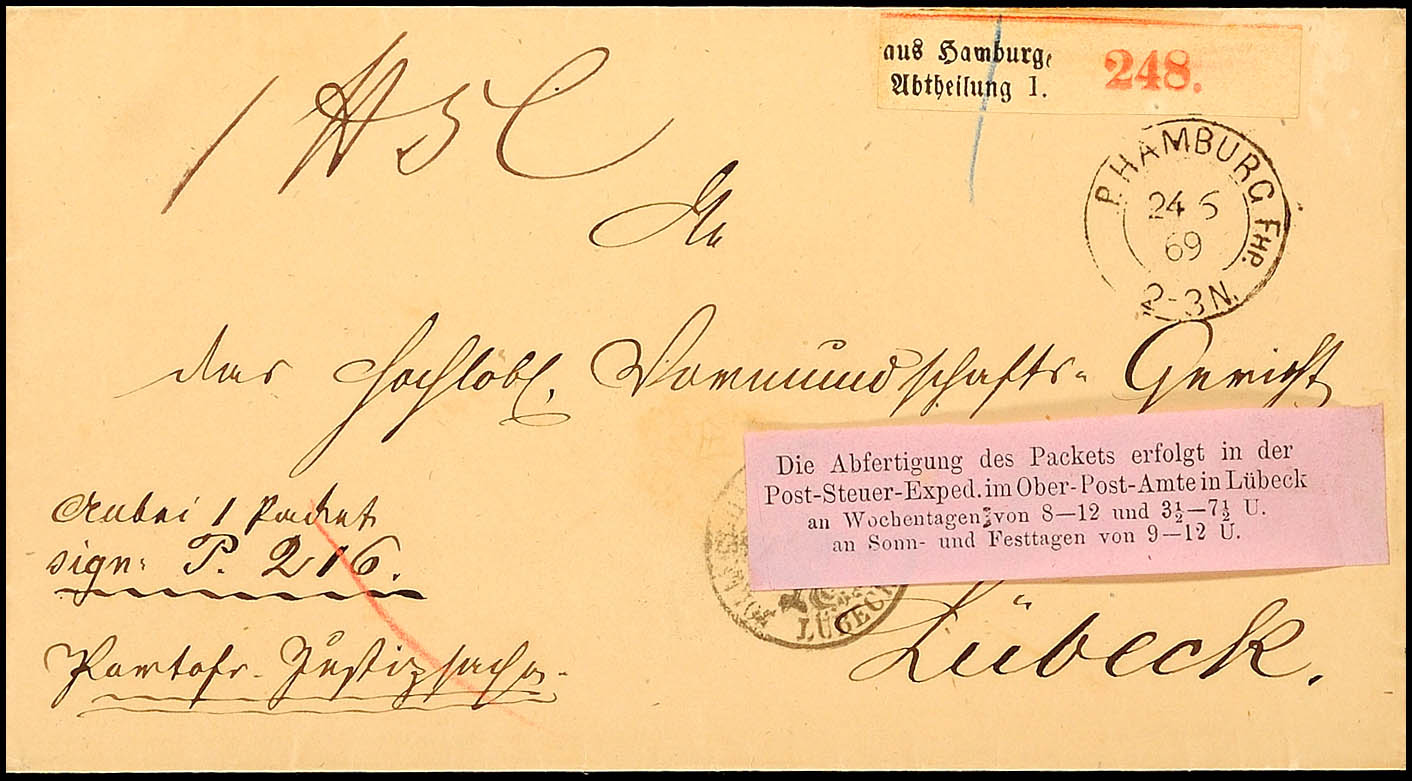 aus Hamburg,
Abtheilung I. 248.
P. HAMBURG FHP.
24 6
69
2-3 N.
An
das Hochlöbl. Vormundschafts- Gericht
Die Abfertigung des Packets erfolgt in der
Post-Steuer-Exped. im Ober-Post-Amte in Lübeck
an Wochentagen von 8—12 und 3½—7½ U.
an Sonn- und Festtagen von 9—12 U.
Anbei 1 Packet
sign: P. 216.
LÜBECK
Lübeck.
Portofr. Justizsache.